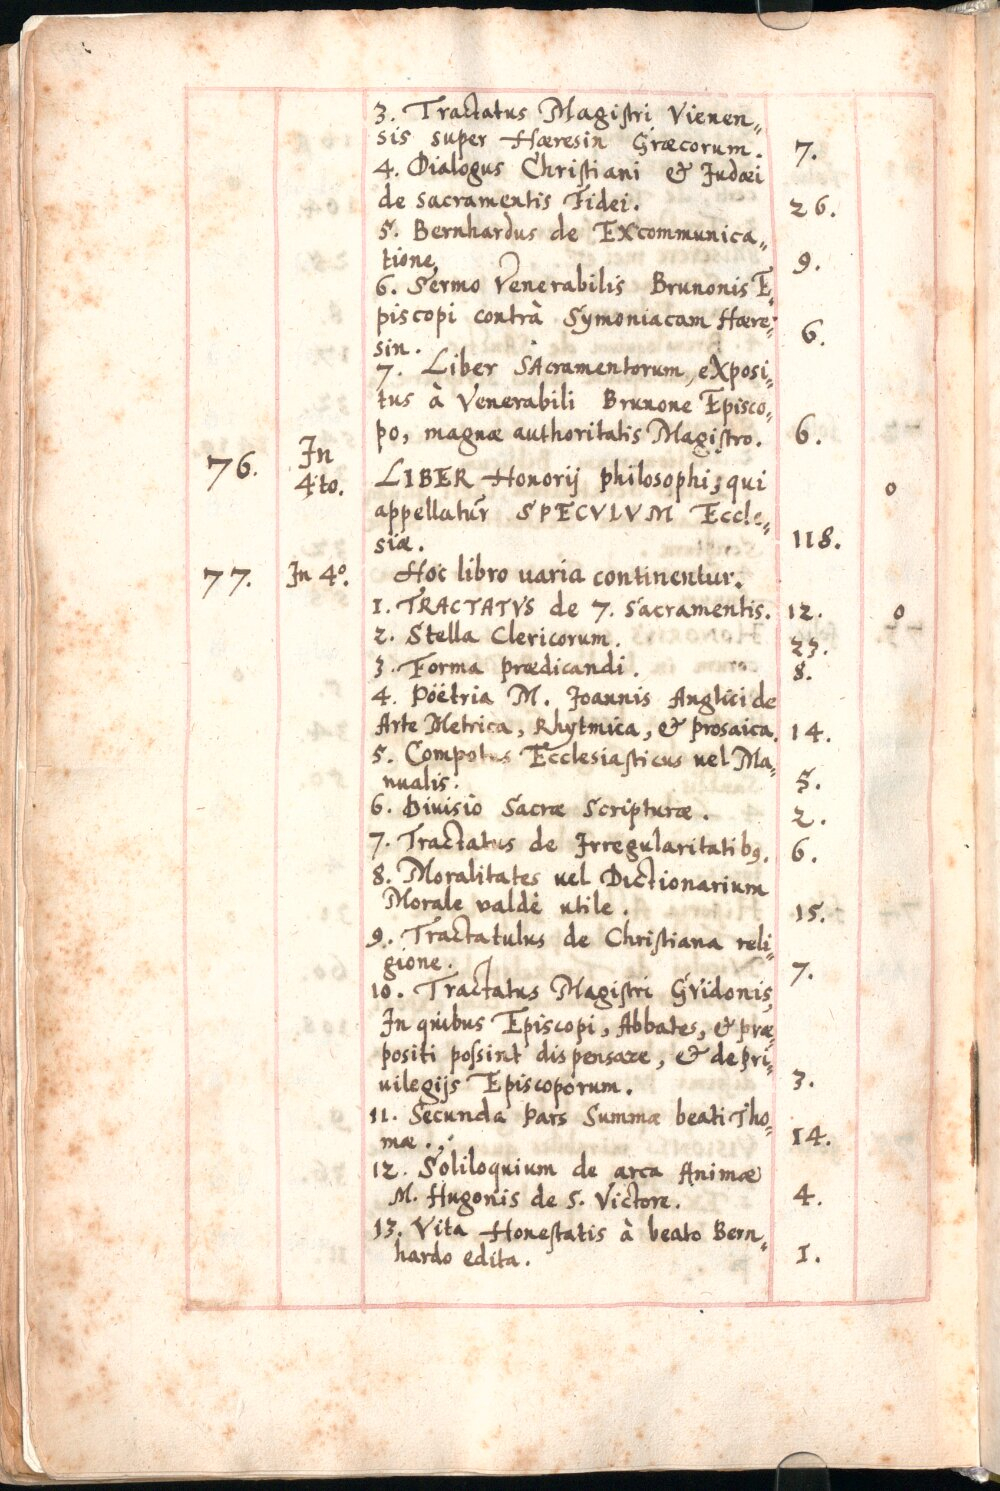 3. Tractatus Magistri Vienen„
sis super Hæresin Græcorum. 7.
4. Dialogus Christiani & Judæi
de sacramentis Fidei. 26.
5. Bernhardus de Excommunica„
tione 9.
6. Sermo Venerabilis Brunonis E„
piscopi contrà Symoniacam Hære„
sin. 6.
7. Liber SAcramentorum, eXposi„
tus à Venerabili Brunone Episco„
po, magnæ authoritatis Magistro. 6.
76. In 4to. LIBER Honorij philosophi, qui o
appellatur SPECVLVM Eccle„
siæ. 118.
77. In 4o. Hoc libro uaria continentur.
1. TRACTATVS de 7. sacramentis. 12. o
2. Stella Clericorum. 23.
3. Forma prædicandi. 8.
4. Pöëtria M. Joannis Anglici de
Arte Metrica, Rhytmica, & prosaica. 14.
5. Compotus Ecclesiasticus uel Ma„
nualis. 5.
6. Diuisio Sacræ Scripturæ. 2.
7. Tractatus de Irregularitatib9. 6.
8. Moralitates uel Dictionarium
Morale valdè utile. 15.
9. Tractatulus de Christiana reli„
gione. 7.
10. Tractatus Magistri Gvidonis,
In quibus Episcopi, Abbates, & præ„
positi possint dispensare, & de pri„
uilegijs Episcoporum. 3.
11. Secunda Pars Summæ beati Tho„
mæ. 14.
12. Soliloquium de arca Animæ
M. Hugonis de S. Victore. 4.
13. Vita Honestatis à beato Bern„
hardo edita. 1.